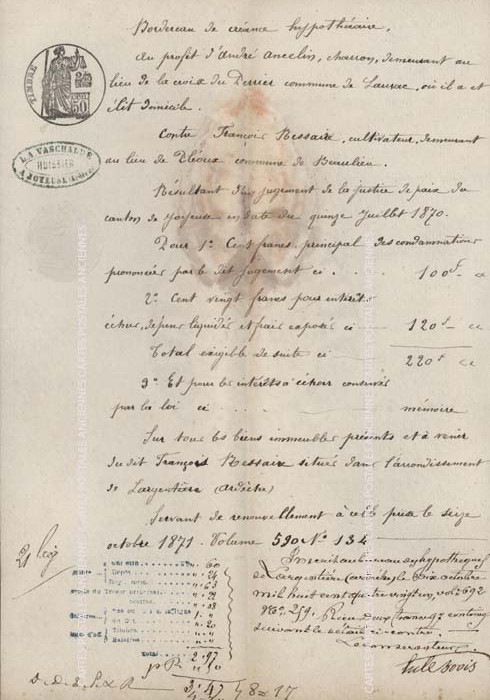 Bordereau de créance hypothécaire,
Au profit d'André Ancelin, charron, demeurant au
lieu de la croix du Perrier commune de Laurac, où il a et
élit domicile.
TIMBRE
50
Contre François Ressaire, cultivateur, demeurant
au lieu de commune de Beaulieu.
LA VASCHALDE
HUISSIER
A JOYEUSE (Ardèche)
Résultant d'un jugement de la justice de paix du
canton de Joyeuse en date du quinze Juillet 1870.
Pour 1° Cent francs, principal des condamnations
prononcées par le dit jugement ci . . . . 100f "c
2° Cent vingt francs pour intérêts
échus, dépens liquidés et frais exposés ci 120f "c
Total exigible de suite ci 220f "c
3° Et pour les intérêts à échoir conservés
par la loi ci . . . . mémoire
Sur tous les biens immeubles présents et à venir
du dit François Ressaire situés dans l'arrondissement
de Largentière (Ardèche)
Servant de renouvellement à celle prise le seize
octobre 1871. Volume 590 N° 134
Inscrit au bureau des hypothèques
de Largentière (Ardèche) le Six octobre
mil huit cent quatre vingt un, vol. 692
N° 259. Reçu Deux francs
suivant le détail ci-contre.
Le conservateur
2,97
3,47